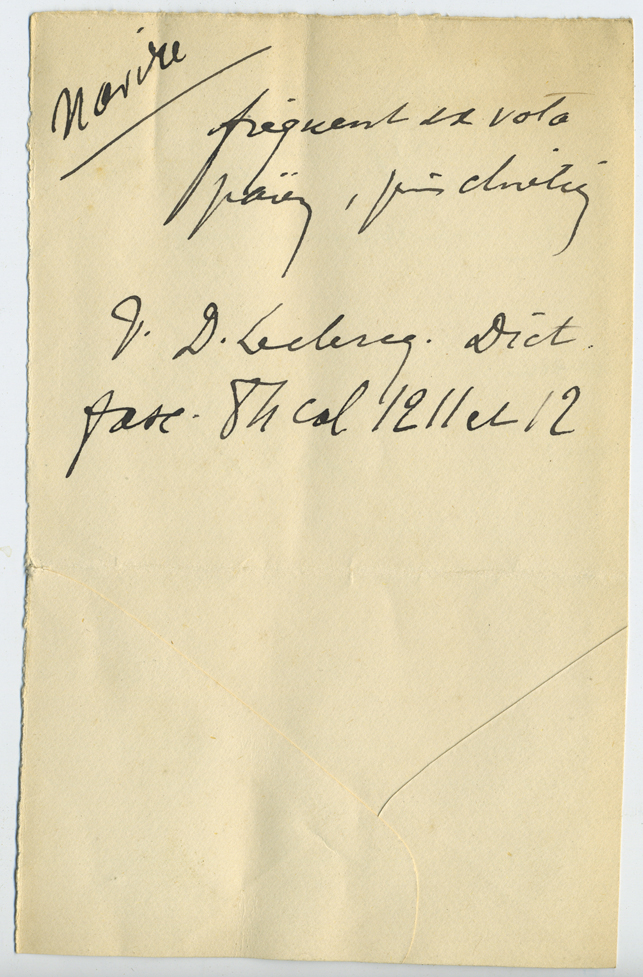 Navire
fréquent ex voto
païen, puis chrétien
V. D. Leclercq. Dict.
fasc. 84 col 1211 et 12